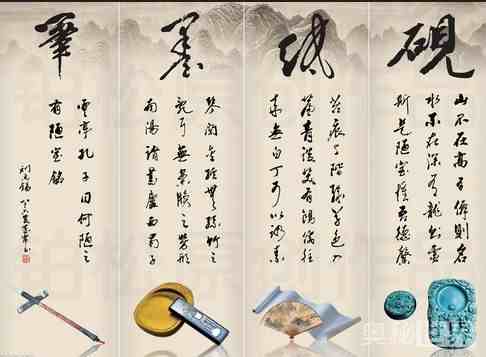 硯
山不在高有僊則名
水不在深有龍則靈
斯是陋室惟吾德馨
紙
苔痕上階綠草色入
簾青談笑有鴻儒往
來無白丁可以調素
墨
琴閱金經無絲竹之
亂耳無案牘之勞形
南陽諸葛廬西蜀子
筆
雲亭孔子曰何陋之
有陋室銘
劉禹錫
奥秘